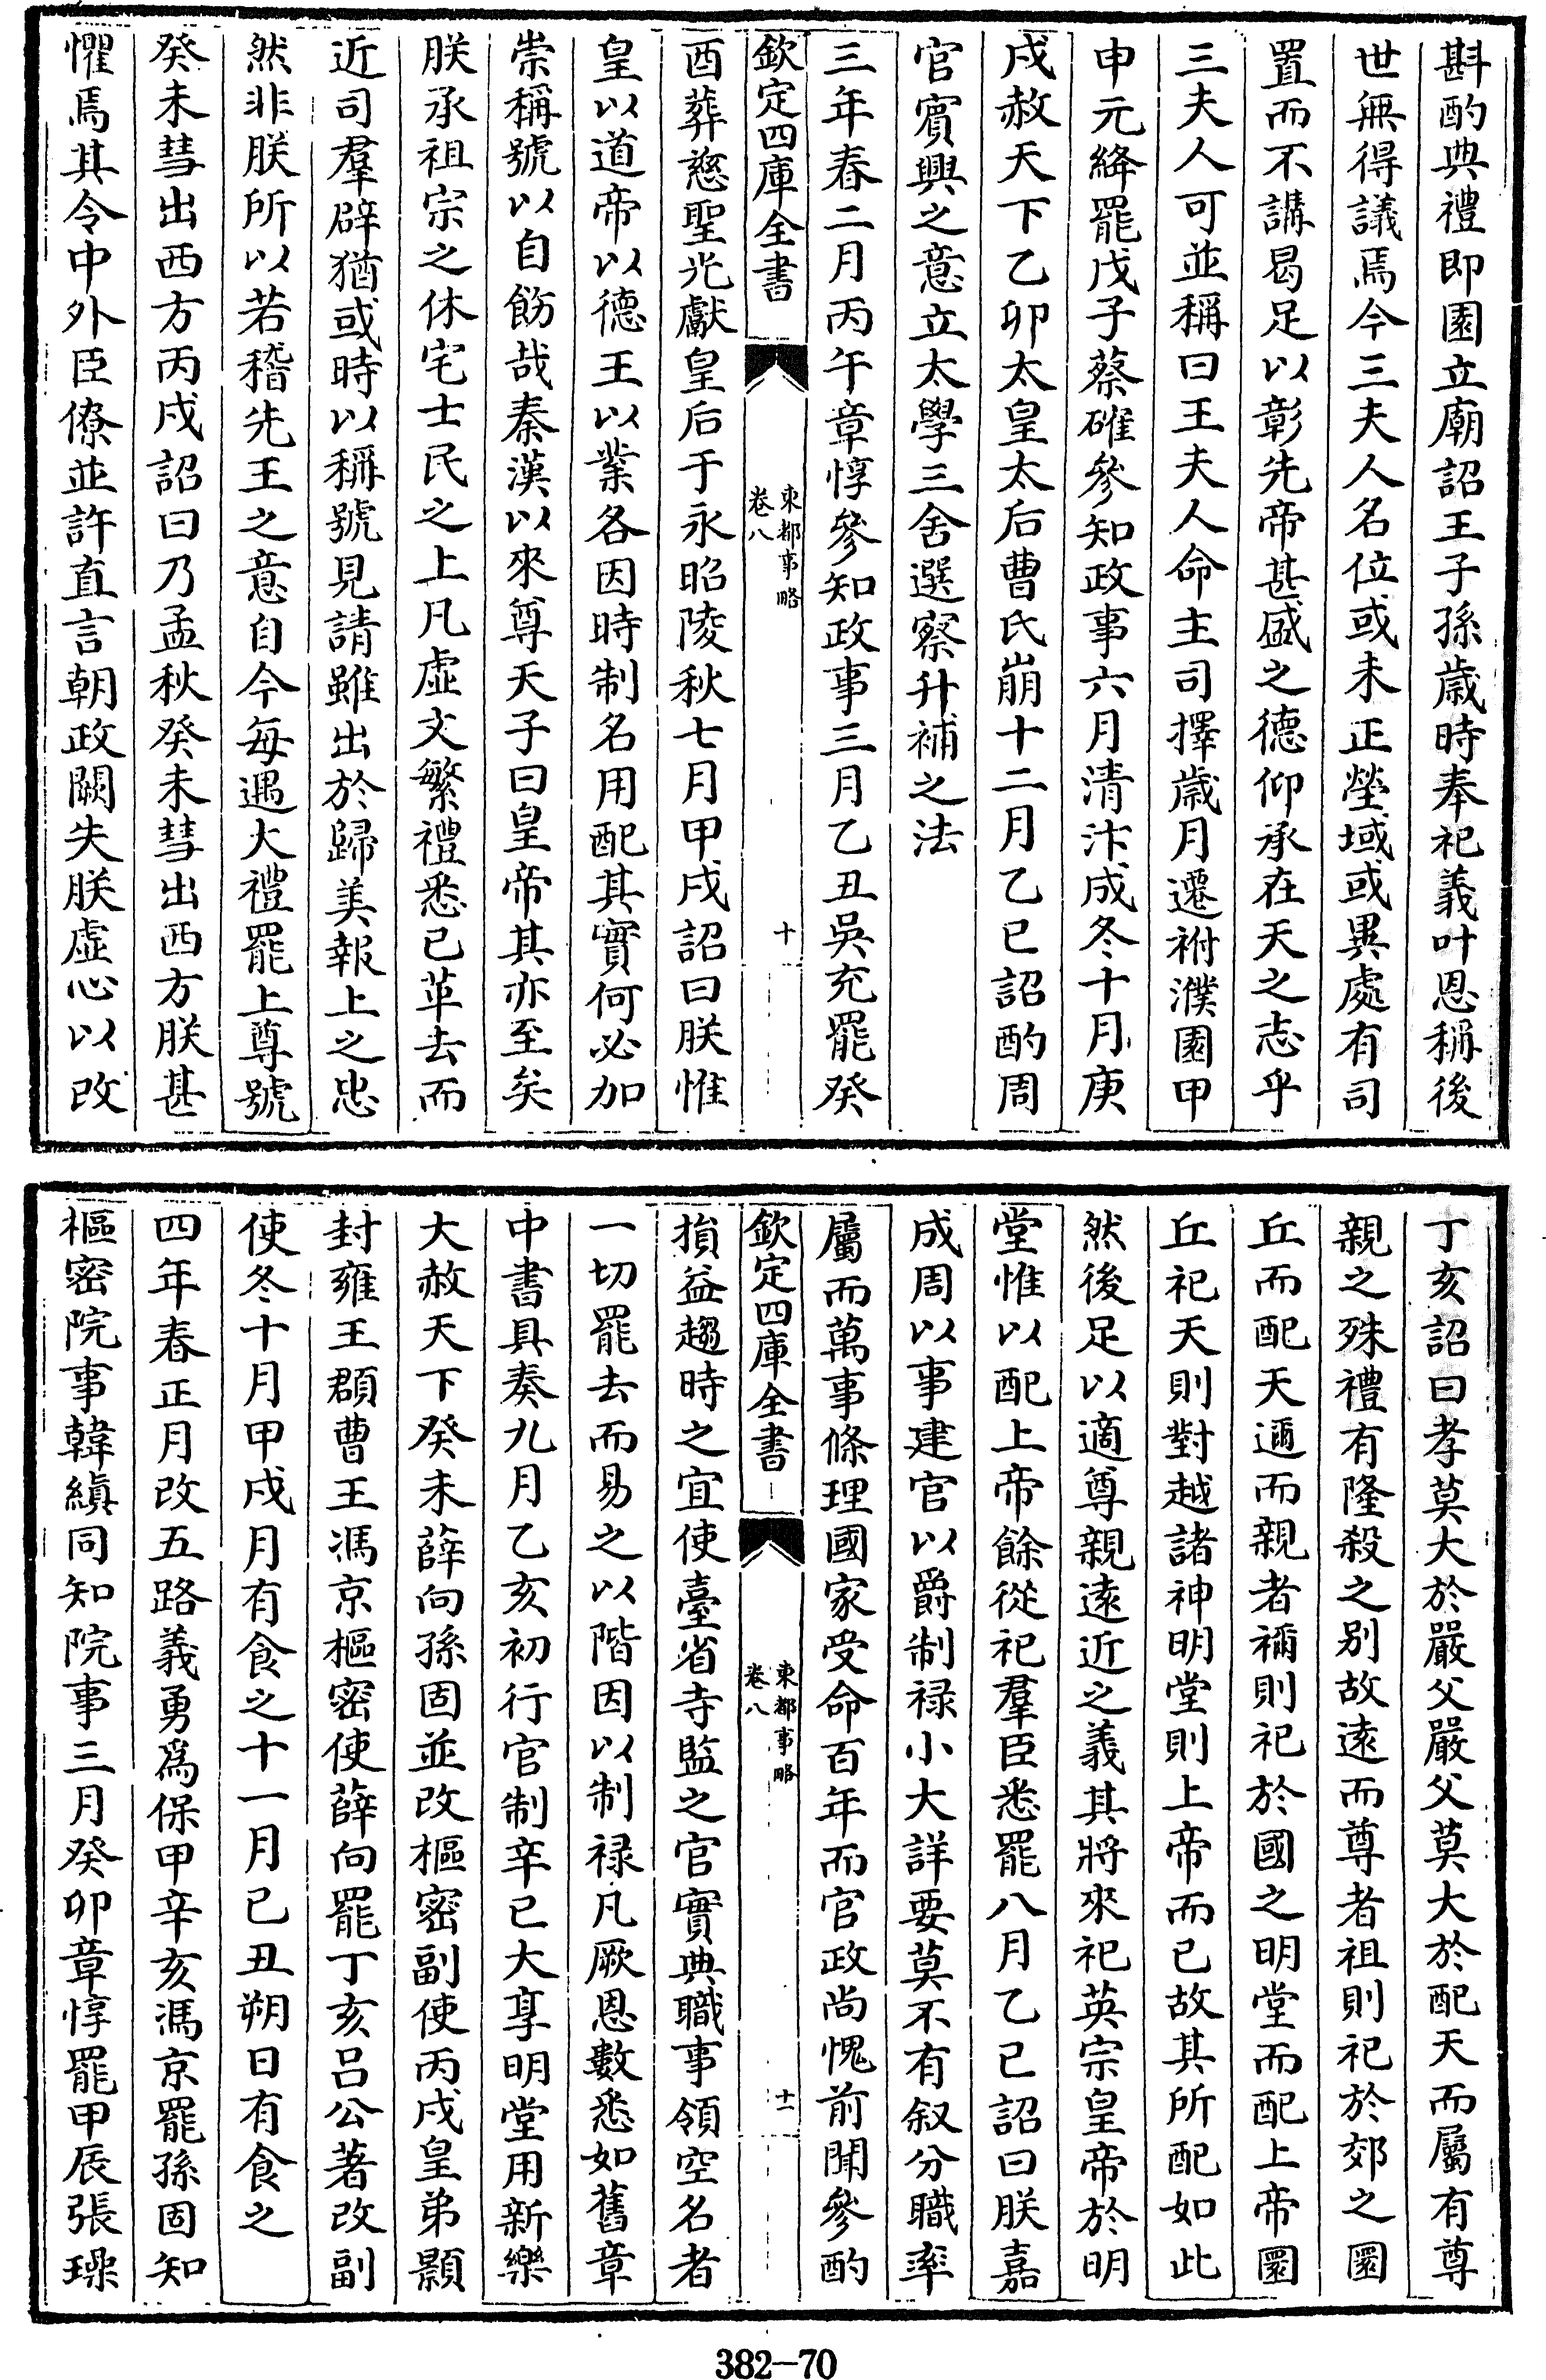 斟酌典禮即園立廟詔王子孫歳時奉祀義叶恩稱後
世無得議焉今三夫人名位或未正塋域或異處有司
置而不講曷足以彰先帝甚盛之德仰承在天之志乎
三夫人可並稱曰王夫人命主司擇歳月遷祔濮園甲
申元絳罷戊子蔡確參知政事六月清汴成冬十月庚
戌赦天下乙卯太皇太后曹氏崩十二月乙巳詔酌周
官賓興之意立太學三舍選察升補之法
三年春二月丙午章惇參知政事三月乙丑吳充罷癸
欽定四庫全書
東都事略
卷八
十
酉葬慈聖光獻皇后于永昭陵秋七月甲戌詔曰朕惟
皇以道帝以德王以業各因時制名用配其實何必加
崇稱號以自飭哉秦漢以來尊天子曰皇帝其亦至矣
朕承祖宗之休宅士民之上凡虛文繁禮悉已革去而
近司羣辟猶或時以稱號見請雖出於歸美報上之忠
然非朕所以若稽先王之意自今每遇大禮罷上尊號
癸未彗出西方丙戌詔曰乃孟秋癸未彗出西方朕甚
懼焉其令中外臣僚並許直言朝政闕失朕虛心以改
丁亥詔曰孝莫大於嚴父嚴父莫大於配天而屬有尊
親之殊禮有隆殺之别故逺而尊者祖則祀於郊之圜
丘而配天邇而親者禰則祀於國之明堂而配上帝圜
丘祀天則對越諸神明堂則上帝而已故其所配如此
然後足以適尊親逺近之義其將來祀英宗皇帝於明
堂惟以配上帝餘從祀羣臣悉罷八月乙巳詔曰朕嘉
成周以事建官以爵制禄小大詳要莫不有叙分職率
屬而萬事條理國家受命百年而官政尚愧前聞參酌
欽定四庫全書
東都事略
卷八
十一
損益趨時之宜使臺省寺監之官實典職事領空名者
一切罷去而易之以階因以制禄凡厥恩數悉如舊章
中書具奏九月乙亥初行官制辛巳大享明堂用新樂
大赦天下癸未薛向孫固並改樞密副使丙戌皇弟顥
封雍王頵曹王馮京樞密使薛向罷丁亥呂公著改副
使冬十月甲戌月有食之十一月己丑朔日有食之
四年春正月改五路義勇爲保甲辛亥馮京罷孫固知
樞密院事韓縝同知院事三月癸卯章惇罷甲辰張璪
382—70